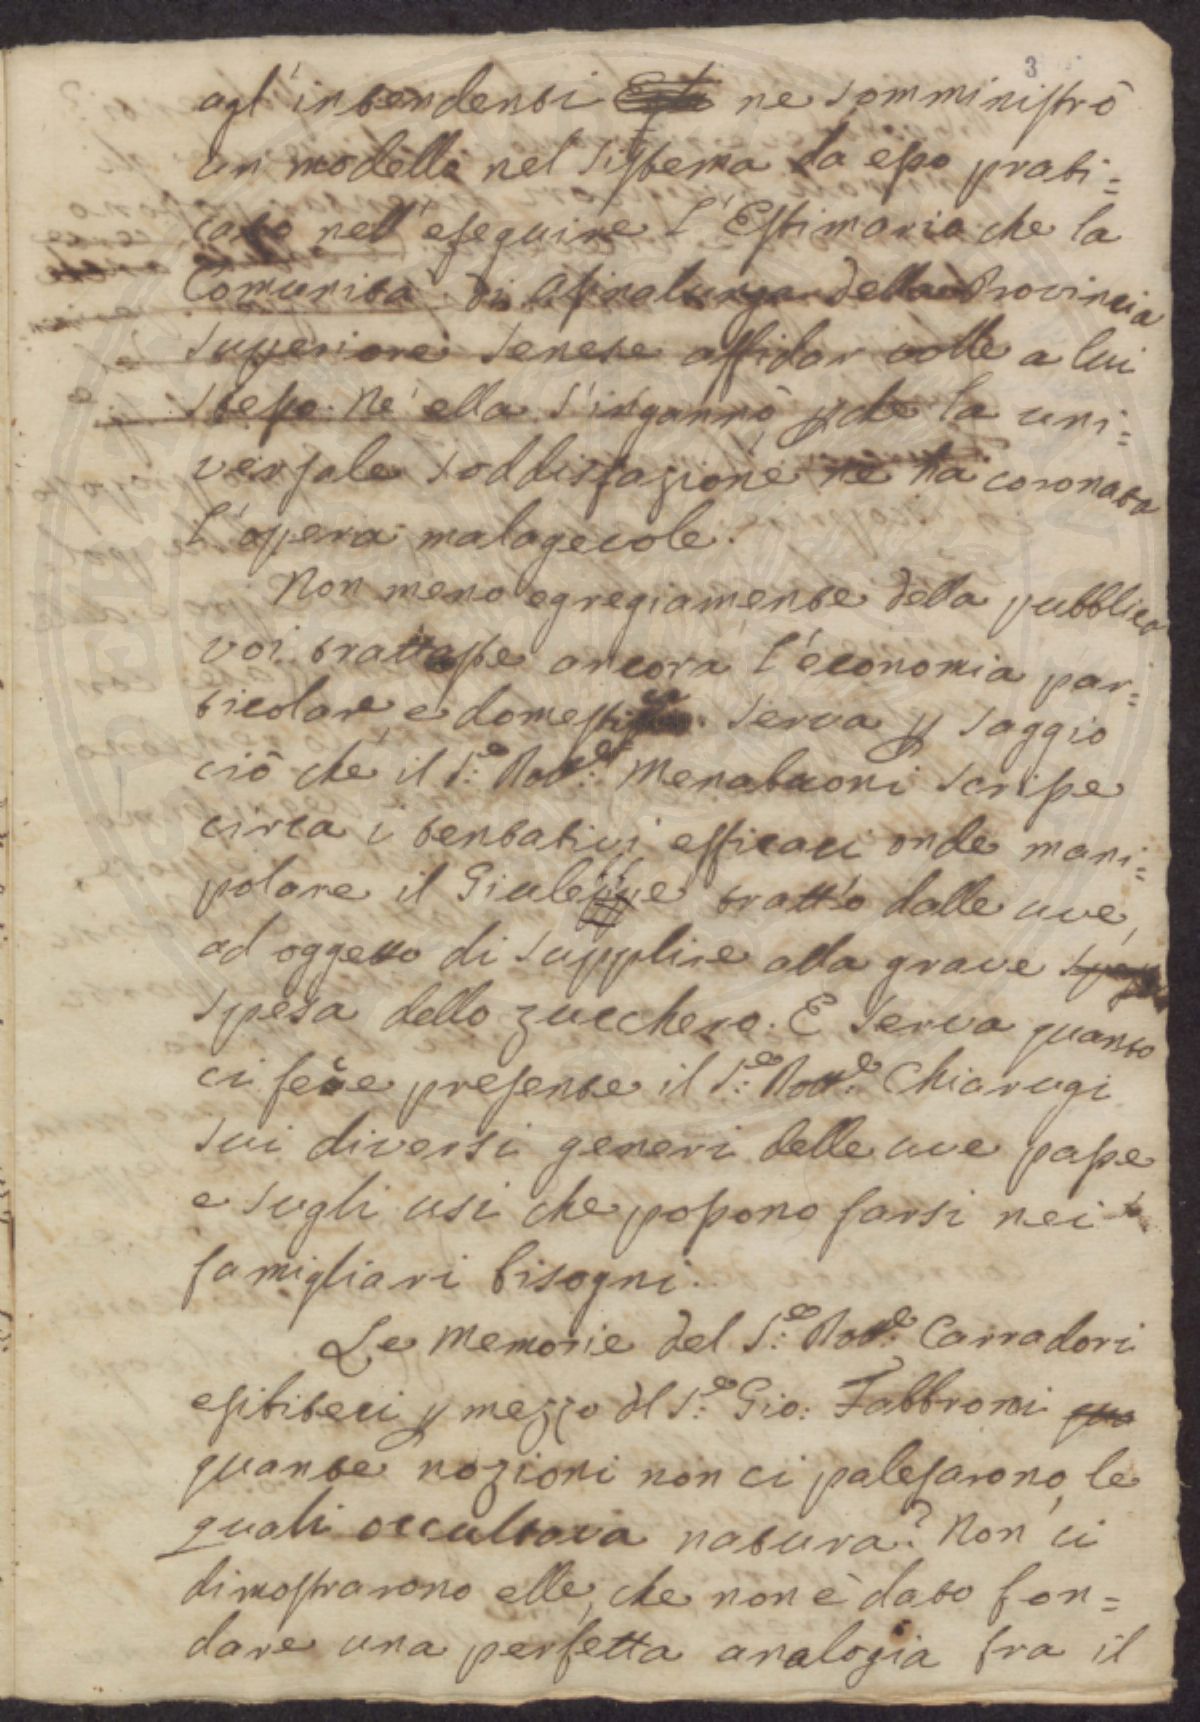 3
agl'intendenti ne somministrò
un modello nel sistema da esso prati=
cato nell'eseguire l'Estimario che la
Comunità di Asinalunga della Provincia
superiore Senese affidar volle a lui
stesso. Nè ella s'ingannò, che la uni=
versale soddisfazione ne ha coronata
l'opera malagevole.
Non meno egregiamente della pubblica
voi trattaste ancora l'economia par=
ticolare, e domestica. Serva p saggio
ciò che il S.e Dott.e Menabuoni scrisse
circa i tentativi efficaci onde mani=
polare il Giulebbe tratto dalle uve,
ad oggetto di supplire alla grave
spesa dello zucchero. E serva quanto
ci fece presente il S.e Dott.e Chiarugi
sui diversi generi delle uve passe
e sugli usi che possono farsi nei
famigliari bisogni.
Le Memorie del S.e Dott.e Carradori
esibiteci p mezzo dl S.e Gio: Fabbroni
quante nozioni non ci palesarono, le
quali occultava natura? Non ci
dimostrarono elle, che non è dato fon=
dare una perfetta analogia fra il